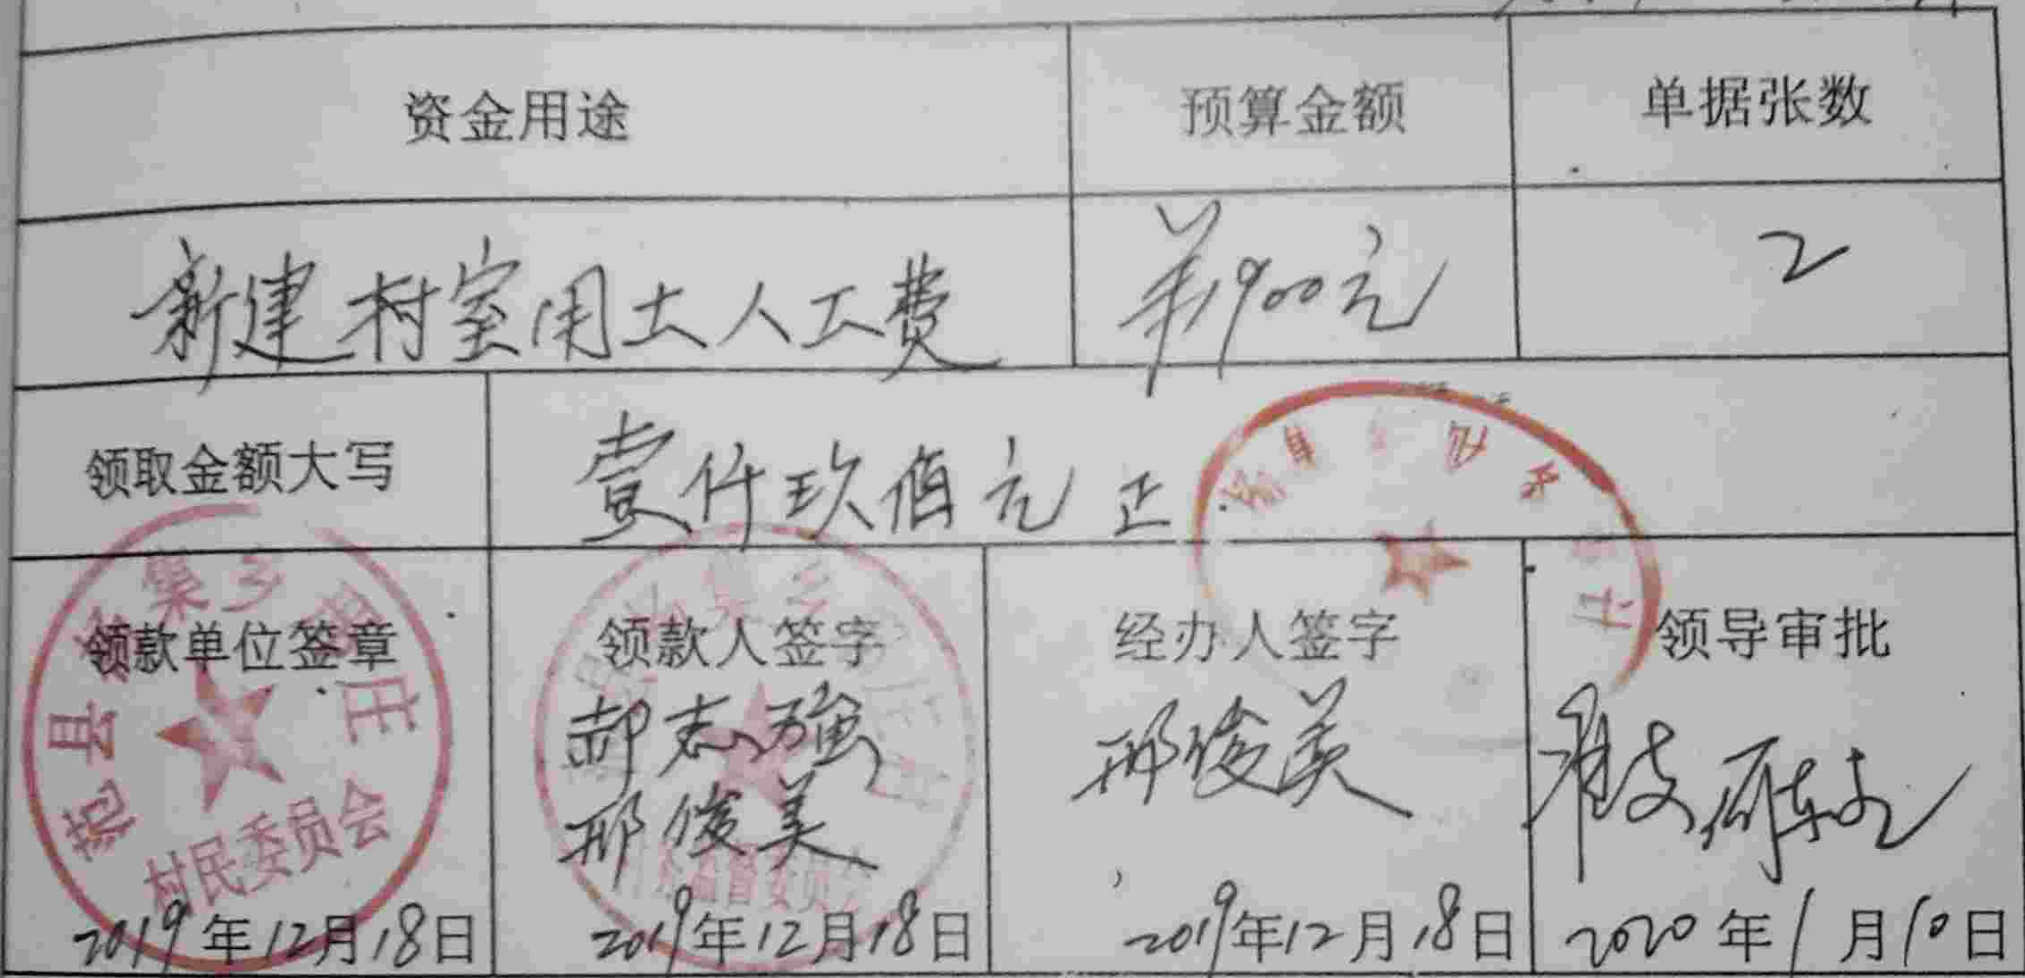 资金用途
预算金额
单据张数
新建村室用土人工费
羊1900元
2
领取金额大写
壹仟玖佰元正
领款单位签章
领款人签字
经办人签字
领导审批
集乡
庄
范县
村民委员会
郝志强
邢俊美
邢俊美
2019年12月18日
2019年12月18日
2019年12月18日
2020年1月10日